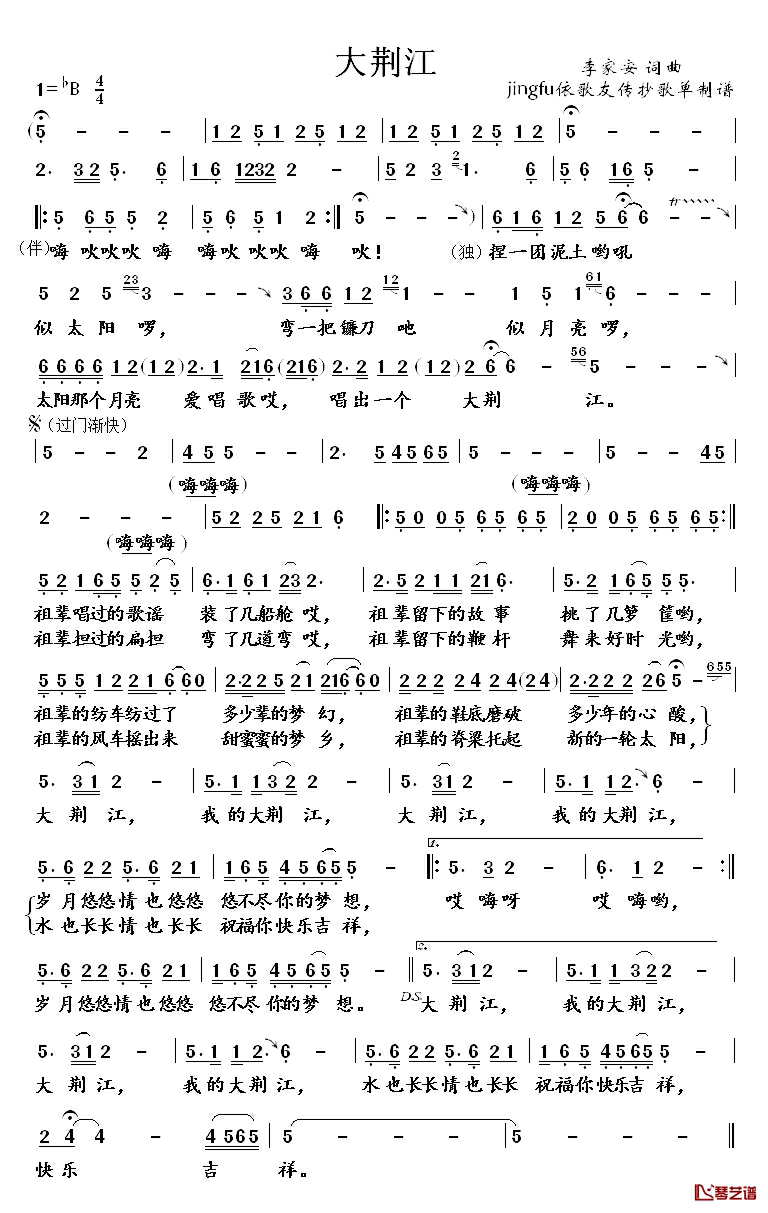 大荆江
1=♭B 4/4
李家安 词曲
jingfu依歌友传抄歌单制谱
(5 - - - | 1 2 5 1 2 5 1 2 | 1 2 5 1 2 5 1 2 | 5 - - - |
2· 3 2 5· 6 | 1 6 1232 2 - | 5 2 3 2 1· 6 | 5 6 1 6 5 - |
5 6 5 5 2 5 6 5 1 2 :| 5 - - -) | 6 1 6 1 2 5 6 6 - - |
(伴)嗨 吙吙吙 嗨 嗨吙 吙吙 嗨 吙! (独) 捏一团泥土哟吼
5 2 5 23 3 - - | 3 6 6 1 2 12 1 - - | 1 5 1 61 6 - - |
似 太 阳 啰, 弯一把镰刀 吔 似 月 亮 啰,
6 6 6 6 1 2 (1 2) | 2· 1 2 1 6 (2 1 6) | 2· 2 1 2 (1 2) | 2 6 6 - 56 5 - - |
太阳那个月亮 爱 唱 歌 哎, 唱 出 一 个 大 荆 江。
𝄋(过门渐快)
5 - - 2 | 4 5 5 - - | 2· 5 4 5 6 5 | 5 - - - | 5 - - 4 5 |
(嗨嗨嗨) (嗨嗨嗨)
2 - - - | 5 2 2 5 2 1 6 |: 5 0 0 5 6 5 6 5 | 2 0 0 5 6 5 6 5 :|
(嗨嗨嗨)
5 2 1 6 5 5 2 5 | 6· 1 6 1 2 3 2 | 5· 2 2 1 1 2 1 6· | 5· 2 1 6 5 5 5· |
祖辈唱过的歌谣 装了几船舱 哎, 祖辈留下的故 事 挑了几箩 筐哟,
祖辈担过的扁担 弯了几道弯 哎, 祖辈留下的鞭 杆 舞来好时 光哟,
5 5 5 1 2 2 1 6 6 0 | 2· 2 2 5 2 1 6 6 0 | 2 4 2 2 2 4 2 4 (2 4) | 2· 2 2 2 2 6 5 - 655 |
祖辈的纺车纺过了 多少辈的梦 幻, 祖辈的鞋底磨破 多少年的心 酸,
祖辈的风车摇出来 甜蜜蜜的梦 乡, 祖辈的脊梁托起 新的一轮太 阳,
5· 3 1 2 - | 5· 5 1 3 2 2 - | 5· 3 1 2 - | 5· 5 1 1 2· 6 - |
大 荆 江, 我 的 大荆 江, 大 荆 江, 我 的 大荆 江,
5· 6 2 2 5· 6 2 1 | 1 6 5 4 5 6 5 5 - |: 1. 5· 3 2 - | 6· 1 2 - :|
岁 月悠悠情 也悠悠 悠不尽你的梦 想, 哎 嗨呀 哎 嗨哟,
水 也长长情 也长长 祝福你快乐吉 祥,
5· 6 2 2 5· 6 2 1 | 1 6 5 4 5 6 5 5 - || 2. 5· 3 1 2 - | 5· 5 1 3 2 2 - |
岁 月悠悠情 也悠悠 悠不尽你的梦 想。 D.S. 大 荆 江, 我 的 大荆 江,
5· 3 1 2 - | 5· 5 1 1 2· 6 - | 5· 6 2 2 5· 6 2 2 | 1 6 5 4 5 6 5 5 - |
大 荆 江, 我 的 大荆 江, 水 也长长情 也长长 祝福你快乐吉 祥,
2 4 4 - 4 5 6 5 | 5 - - - | 5 - - - ||
快乐 吉 祥。
琴艺谱